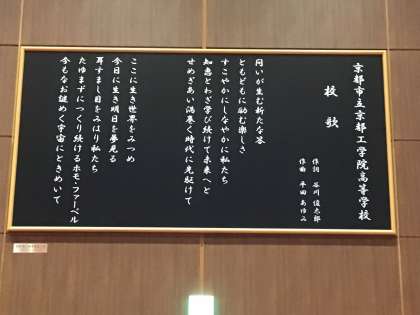 京都市立京都工学院高等学校
校歌
作詞 谷川俊太郎
作曲 平田あゆみ
問いが生む新たな答
ともどもに励む楽しさ
すこやかにしなやかに私たち
知恵とわざ学び続けて未来へと
せめぎあい渦巻く時代に先駆けて
ここに生き世界をみつめ
今日に生き明日を夢見る
耳すまし目をみはり私たち
たゆまずにつくり続けるホモ・ファーベル
今もなお謎めく宇宙にときめいて